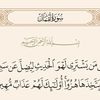 سورة لقمان
بسم الله الرحمن الرحيم
مَن يَشْتَرِى لَهْوَ ٱلْحَدِيثِ لِيُضِلَّ عَن سَبِ
تَّخِذَهَا هُزُوًا أُو۟لَٰٓئِكَ لَهُمْ عَذَابٌ مُّهِين